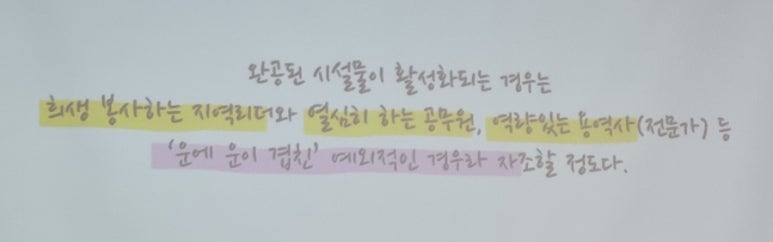 완공된 시설물이 활성화되는 경우는
희생 봉사하는 지역리더와 열심히 하는 공무원, 역량있는 용역사(전문가) 등
‘운에 운이 겹친’ 예외적인 경우라 자조할 정도다.